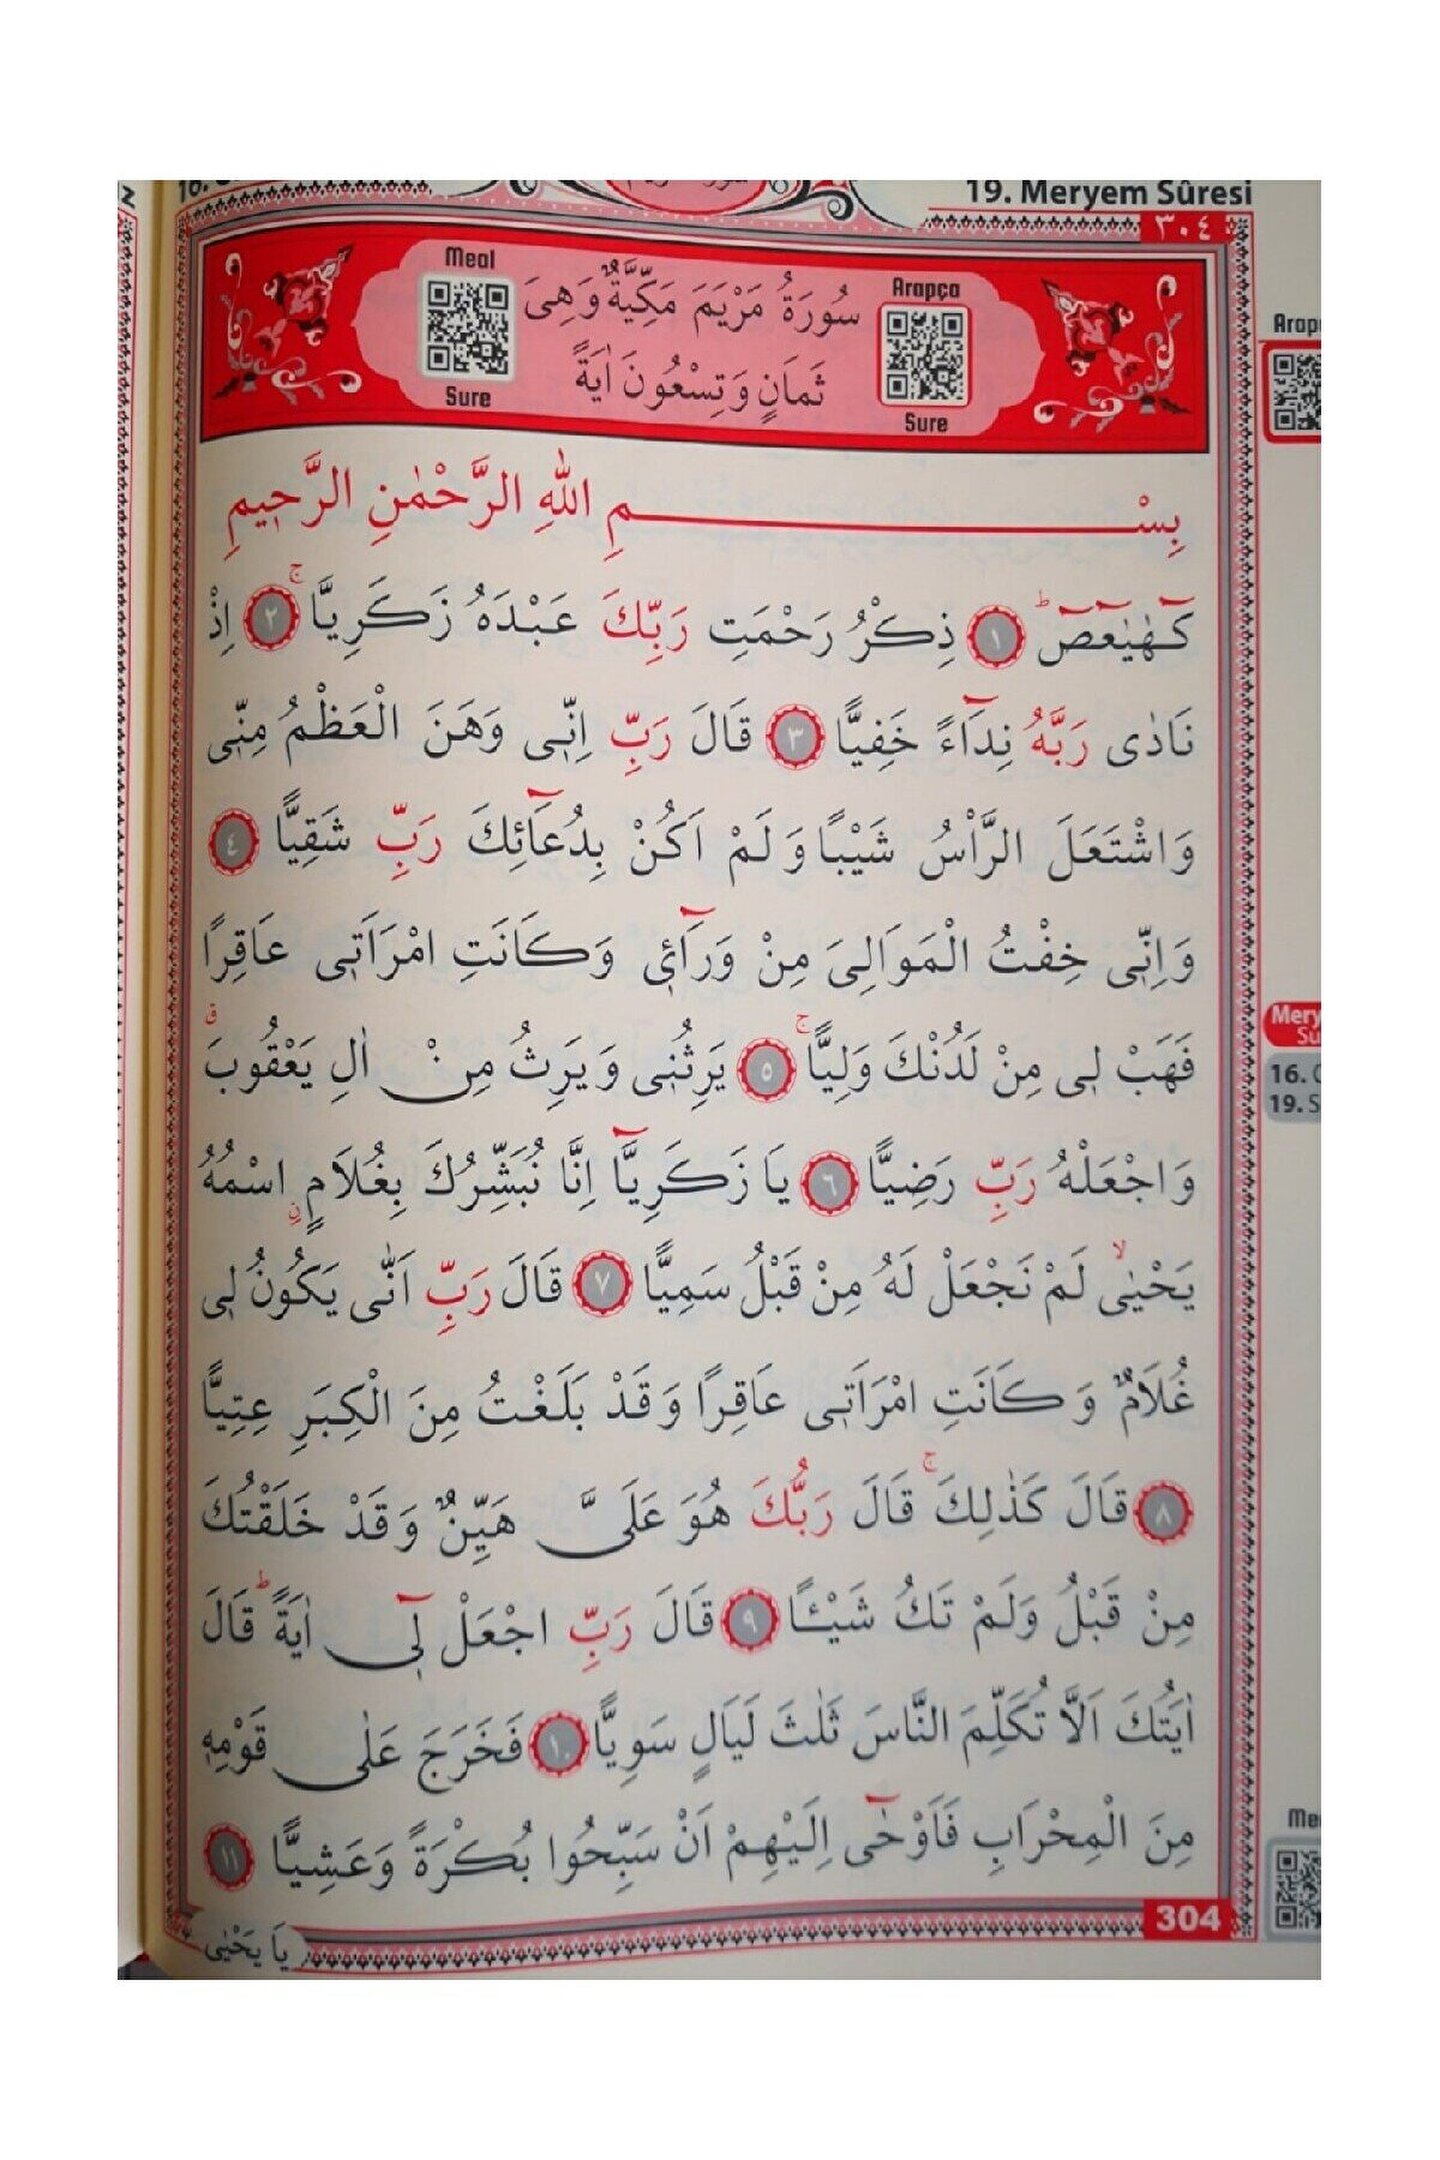 19. Meryem Sûresi
٣٠٤
Meal
Sure
Arapça
Sure
سُورَةُ مَرْيَمَ مَكِّيَّةٌ وَهِىَ
ثَمَانٍ وَتِسْعُونَ اٰيَةً
بِسْمِ اللّٰهِ الرَّحْمٰنِ الرَّحٖيمِ
كٓهٰيٰعٓصٓۜ ﴿١﴾ ذِكْرُ رَحْمَتِ رَبِّكَ عَبْدَهُ زَكَرِيَّاۚ ﴿٢﴾ اِذْ
نَادٰى رَبَّهُ نِدَٓاءً خَفِيًّا ﴿٣﴾ قَالَ رَبِّ اِنّٖى وَهَنَ الْعَظْمُ مِنّٖى
وَاشْتَعَلَ الرَّأْسُ شَيْبًا وَلَمْ اَكُنْ بِدُعَٓائِكَ رَبِّ شَقِيًّا ﴿٤﴾
وَاِنّٖى خِفْتُ الْمَوَالِىَ مِنْ وَرَٓائٖى وَكَانَتِ امْرَاَتٖى عَاقِرًا
فَهَبْ لٖى مِنْ لَدُنْكَ وَلِيًّاۚ ﴿٥﴾ يَرِثُنٖى وَيَرِثُ مِنْ اٰلِ يَعْقُوبَۗ
وَاجْعَلْهُ رَبِّ رَضِيًّا ﴿٦﴾ يَا زَكَرِيَّٓا اِنَّا نُبَشِّرُكَ بِغُلَامٍ اسْمُهُ
يَحْيٰىۙ لَمْ نَجْعَلْ لَهُ مِنْ قَبْلُ سَمِيًّا ﴿٧﴾ قَالَ رَبِّ اَنّٰى يَكُونُ لٖى
غُلَامٌ وَكَانَتِ امْرَاَتٖى عَاقِرًا وَقَدْ بَلَغْتُ مِنَ الْكِبَرِ عِتِيًّا
﴿٨﴾ قَالَ كَذٰلِكَۚ قَالَ رَبُّكَ هُوَ عَلَىَّ هَيِّنٌ وَقَدْ خَلَقْتُكَ
مِنْ قَبْلُ وَلَمْ تَكُ شَيْـًٔا ﴿٩﴾ قَالَ رَبِّ اجْعَلْ لٖٓى اٰيَةًۜ قَالَ
اٰيَتُكَ اَلَّا تُكَلِّمَ النَّاسَ ثَلٰثَ لَيَالٍ سَوِيًّا ﴿١٠﴾ فَخَرَجَ عَلٰى قَوْمِهٖ
مِنَ الْمِحْرَابِ فَاَوْحٰٓى اِلَيْهِمْ اَنْ سَبِّحُوا بُكْرَةً وَعَشِيًّا ﴿١١﴾
304
يَا يَحْيٰى